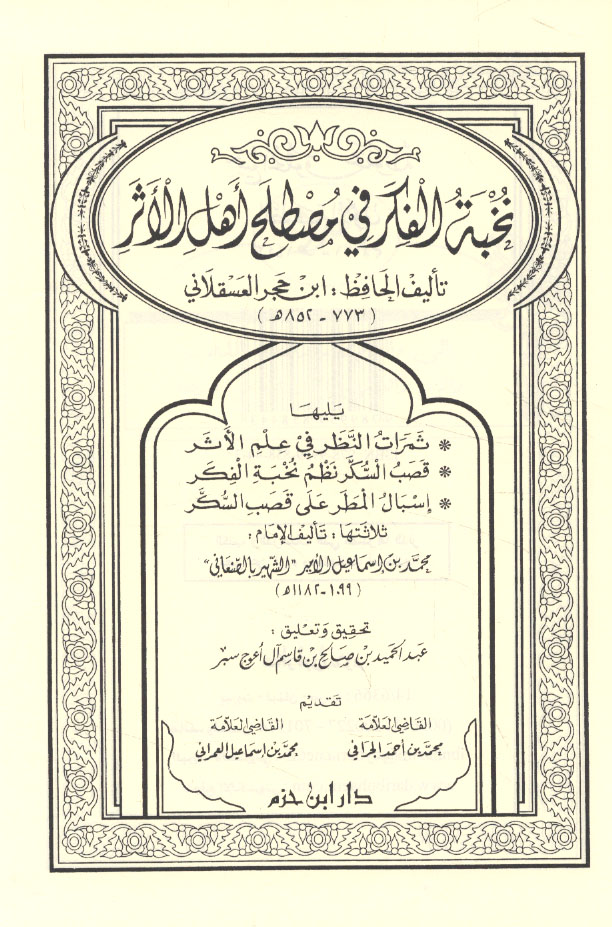 نُخْبَةُ الْفِكَرِ فِي مُصْطَلَحِ أَهْلِ الْأَثَرِ
تأليف الحافظ : ابن حجر العسقلاني
( ٧٧٣ - ٨٥٢ هـ )
يليها
* ثَمَرَاتُ النَّظَرِ فِي عِلْمِ الأَثَر
* قَصَبُ السُّكَّرِ نَظْمُ نُخْبَةِ الْفِكَر
* إسْبَالُ المَطَر عَلَى قَصَبِ السُّكَّر
ثلاثتها : تأليف الإمام :
محمد بن إسماعيل الأمير "الشهير بالصنعاني"
( ١٠٩٩ - ١١٨٢ هـ )
تحقيق وتعليق :
عبد الحميد بن صالح بن قاسم آل أعوج سبر
تقديم
القاضي العلامة
محمد بن أحمد الجرافي
القاضي العلامة
محمد بن إسماعيل العمراني
دار ابن حزم